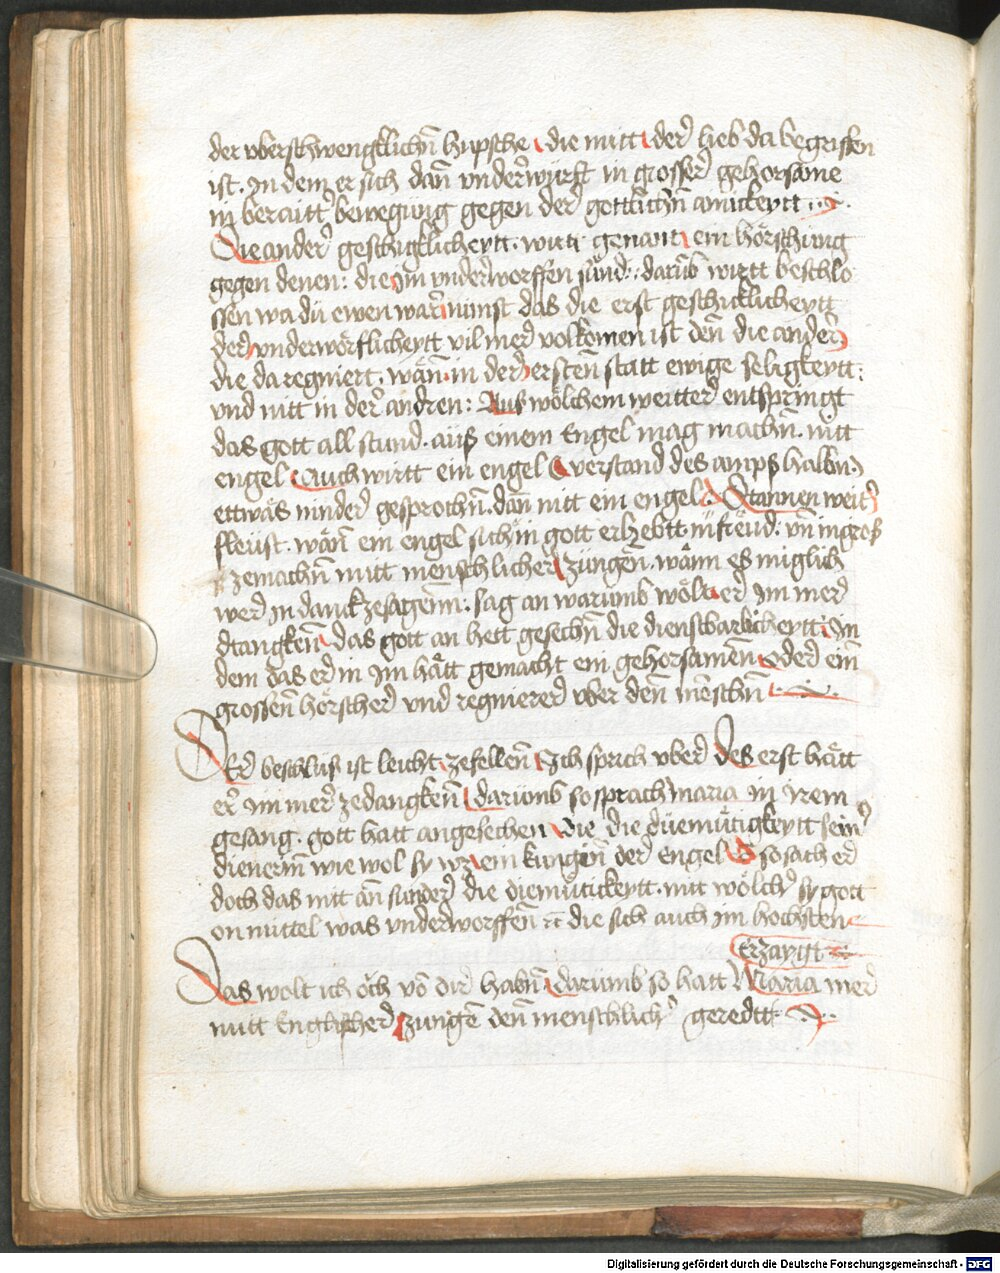 der vberschwengklichn̄ hupsche die mitt der lieb da begriffen
ist. In dem er sich dan̄ vnderwürft in grosser gehorsame
in beraitt bewegung gegen der gottlichn̄ amickeytt
Die ander geschigklicheytt. wirtt genant ein hörschung
gegen denen: die im vnderworffen sünd: darüb wirtt beschlo
ssen wa dü ewen war nimst das die erst geschicklicheytt
der vnderwörflicheytt vil mer volkomen ist den̄ die ander
die da regniert. wan̄ in der ersten̄ statt ewige seligkeytt:
vnd nitt in der andren: Aus wölchem weitter entspringt
das gott all stund. auß einem Engel mag machn̄. nitt
engel Auch wirtt ein engel verstand des ampß halbn
ettwas minder gesprochn̄. dan̄ nitt ein engel. weit
fleüst. wän̄ ein engel sich in gott erhebtt in freüd: vn̄ in groß
zemachn̄ mitt menschlicher züngen̄. wänn es müglich
werd in danck zesagenn̄: sag an warumb wölt er im mer
dtangken̄ das gott an hett gesechn̄ die dienstbarlicheytt: In
dem das er in im hätt gemacht ein gehorsamen̄ oder ein̄
grossen̄ hörscher vnd regnierer vber den̄ menschn̄
Der beschluß ist leicht zefellen̄ Ich sprich vber des erst hätt
er im mer zedangken̄ darümb so sprach maria in irem
gesang. gott hatt angesechen die die düemütigkeytt seiner
dienerin̄ wie wol sy wz ein kungin̄ der engel so sach er
doch das mit an̄ sunder die diemütickeytt. mit wölcher sy gott
on mittel was vnderworffen̄ die sich auch im hochsten
Erzaygt
Das wolt ich och vo̅ dir habn̄ darümb so hatt Maria mer
mitt Englischer zungen̄ den̄ menschlicher geredtt
Digitalisierung gefördert durch die Deutsche Forschungsgemeinschaft - DFG